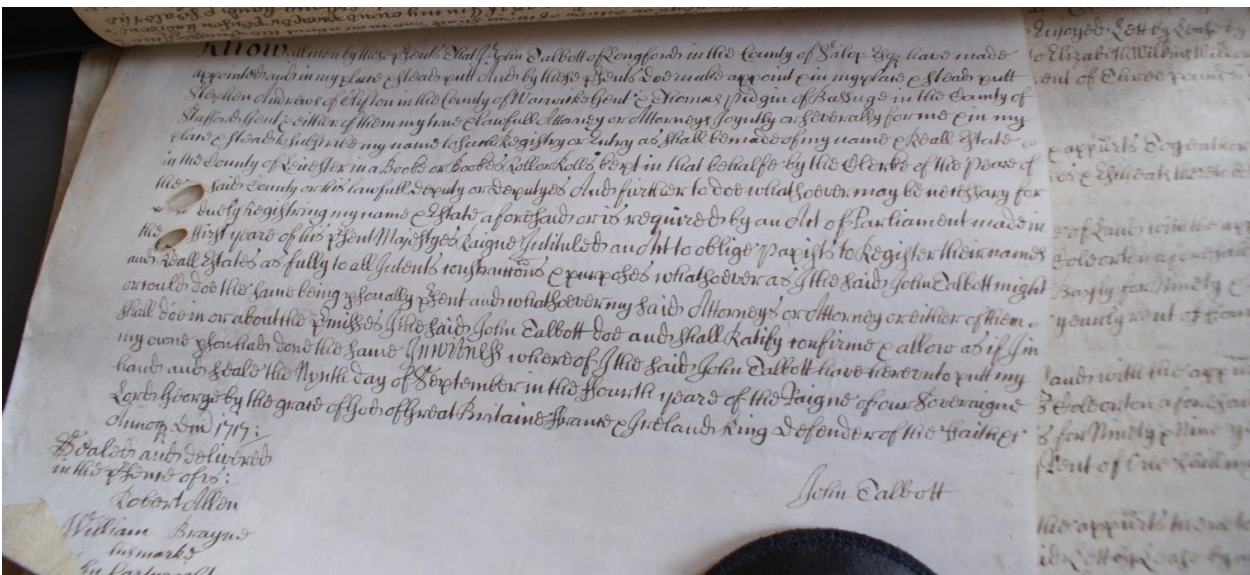 Know all men by these p'sents That I John Talbott of Longford in the County of Salop Esqr have made
appointed and in my place & stead putt And by these p'sents doe make appoint & in my place & stead putt
Stephen Andrews of Clifton in the County of Warwicke Gent & Thomas Pidgin of in the County of
Stafford Gent & either of them my true & lawfull Attorney or Attorneys Joyntly or severally for me & in my
place & stead to subscribe my name to such Registry or Entry as shall be made of my name & Reall Estate
in the County of Leicester in a Booke or Bookes Roll or Rolls kept in that behalfe by the Clerke of the Peace of
the said County or his lawfull deputy or deputyes And further to doe whatsoever may be necessary for
duely Registring my name & Estate aforesaid or is required by an Act of Parliament made in
the ffirst yeare of his p'sent Majestyes Raigne Intituled an Act to oblige Papists to Register their names
and Reall Estates as fully to all Intents constructions & purposes whatsoever as I the said John Talbott might
or could doe the same being p'sonally p'sent and whatsoever my said Attorneys or Attorney or either of them
shall doe in or about the p'misses I the said John Talbott doe and shall Ratify confirme & allow as if I in
my owne p'son had done the same In witness whereof I the said John Talbott have hereunto putt my
hand and seale the Nynth day of September in the ffourth yeare of the Raigne of our Soveraigne
Lord George by the grace of God of Great Britaine ffrance & Ireland King Defender of the ffaith &c
Annoq Dni 1717:
Sealed and delivered
in the p'sence of us:
John Talbott
Robert Allen
William Brayne
his marke
Cartwright
enjoyed Lett by Lease
to Elizabeth
rent of Three pounds
& appurts Togeather
of Land with the
Coleorton aforesaid
for Ninety
yearly rent of
Land with the
Coleorton aforesaid
for Ninety Nine
Rent of One shilling
the appurts
Lett by Lease